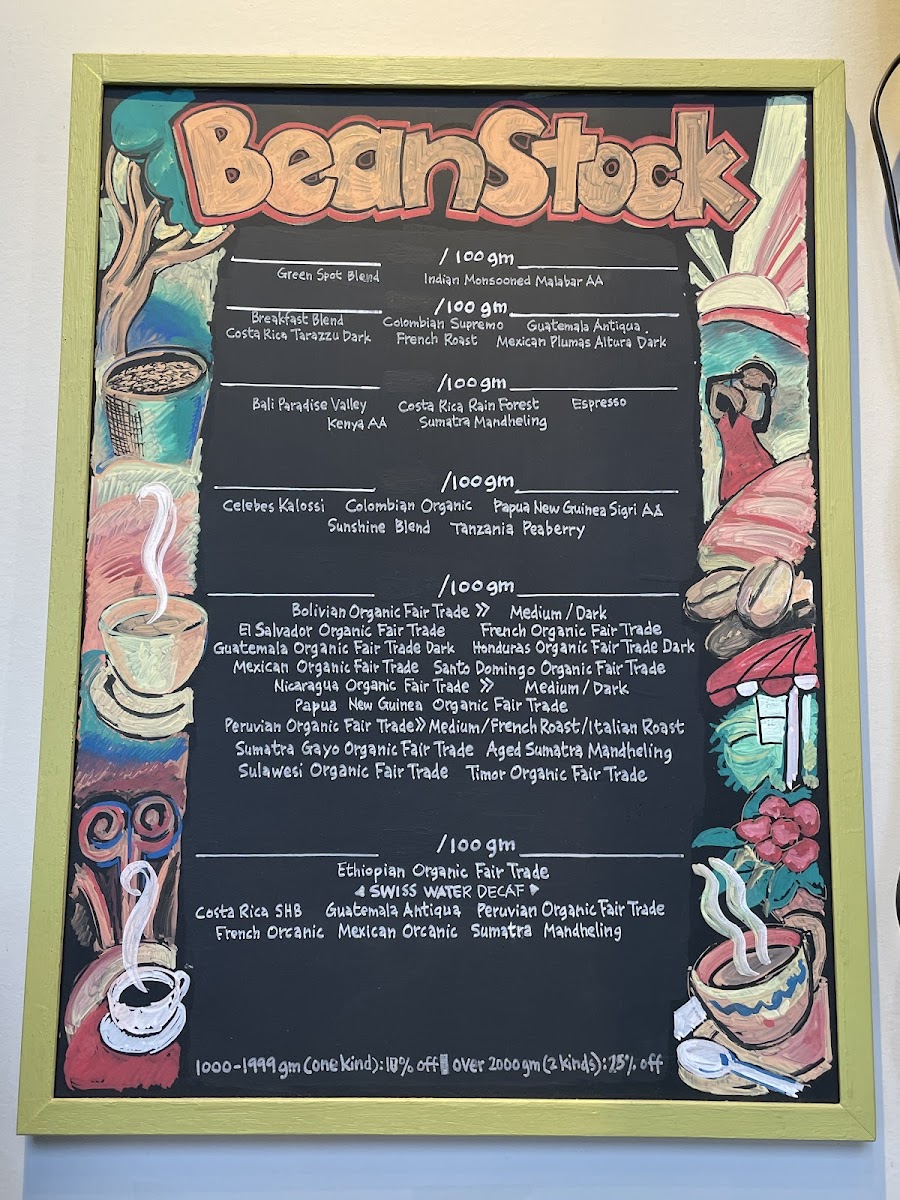 BeanStock
/100gm
Green Spot Blend Indian Monsooned Malabar AA
/100gm
Breakfast Blend Colombian Supremo Guatemala Antiqua.
Costa Rica Tarazzu Dark French Roast Mexican Plumas Altura Dark
/100gm
Bali Paradise Valley Costa Rica Rain Forest Espresso
Kenya AA Sumatra Mandheling
/100gm
Celebes Kalossi Colombian Organic Papua New Guinea Sigri AA
Sunshine Blend Tanzania Peaberry
/100gm
Bolivian Organic Fair Trade » Medium / Dark
El Salvador Organic Fair Trade French Organic Fair Trade
Guatemala Organic Fair Trade Dark Honduras Organic Fair Trade Dark
Mexican Organic Fair Trade Santo Domingo Organic Fair Trade
Nicaragua Organic Fair Trade » Medium / Dark
Papua New Guinea Organic Fair Trade
Peruvian Organic Fair Trade » Medium/French Roast/Italian Roast
Sumatra Gayo Organic Fair Trade Aged Sumatra Mandheling
Sulawesi Organic Fair Trade Timor Organic Fair Trade
/100gm
Ethiopian Organic Fair Trade
SWISS WATER DECAF
Costa Rica SHB Guatemala Antiqua Peruvian Organic Fair Trade
French Orcanic Mexican Orcanic Sumatra Mandheling
1000-1999gm (one kind): 10% off over 2000gm (2 kinds): 25% off